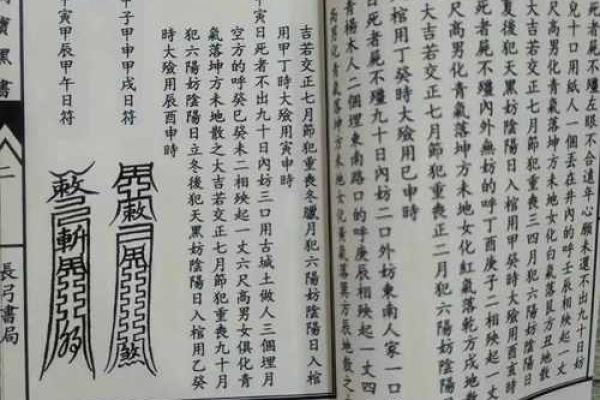 死者屍不殭左眼不合遠年心願未還不出九十日妨
兒十口用紙人一個丟在井內的呼壬辰相殃起一丈
尺高男化青氣落坤方未地女化白氣落艮方丑地散
大吉若交正七月節犯重喪三四月犯六陽妨陰陽日
夏後犯天黑妨陰陽日入棺用甲癸時大殮用酉亥時
日死者屍不殭內外無妨的呼丁酉庚子二相殃起一丈
尺高男化青氣落坤方未地女化紅氣落乾方戌地散
吉若交正七月節犯重喪正二月犯六陽妨陰陽日
棺用丁癸時大殮用巳申時
日死者屍不殭九十日內妨二口外妨東南人家一口
楊木人二個埋東南路口的呼庚辰相殃起一丈四
高男化青氣落坤方未地女化黃氣落巽方辰地散之
吉若交正七月節犯重喪冬臘月犯六陽妨陰陽日入棺
用甲丁時大殮用寅申時
寅日死者不出九十日內妨三口用古城土做人三個埋月
空方的呼癸巳癸未二相殃起一丈六尺高男女俱化青
氣落坤方未地散之大吉若交正七月節犯重喪九十月
犯六陽妨陰陽日立冬後犯天黑妨陰陽日入棺用乙癸
時大殮用辰酉申時
甲子甲申甲戌日符
敕
煞
甲寅甲辰甲午日符
敕
斬
寶黑書
二
長弓書局